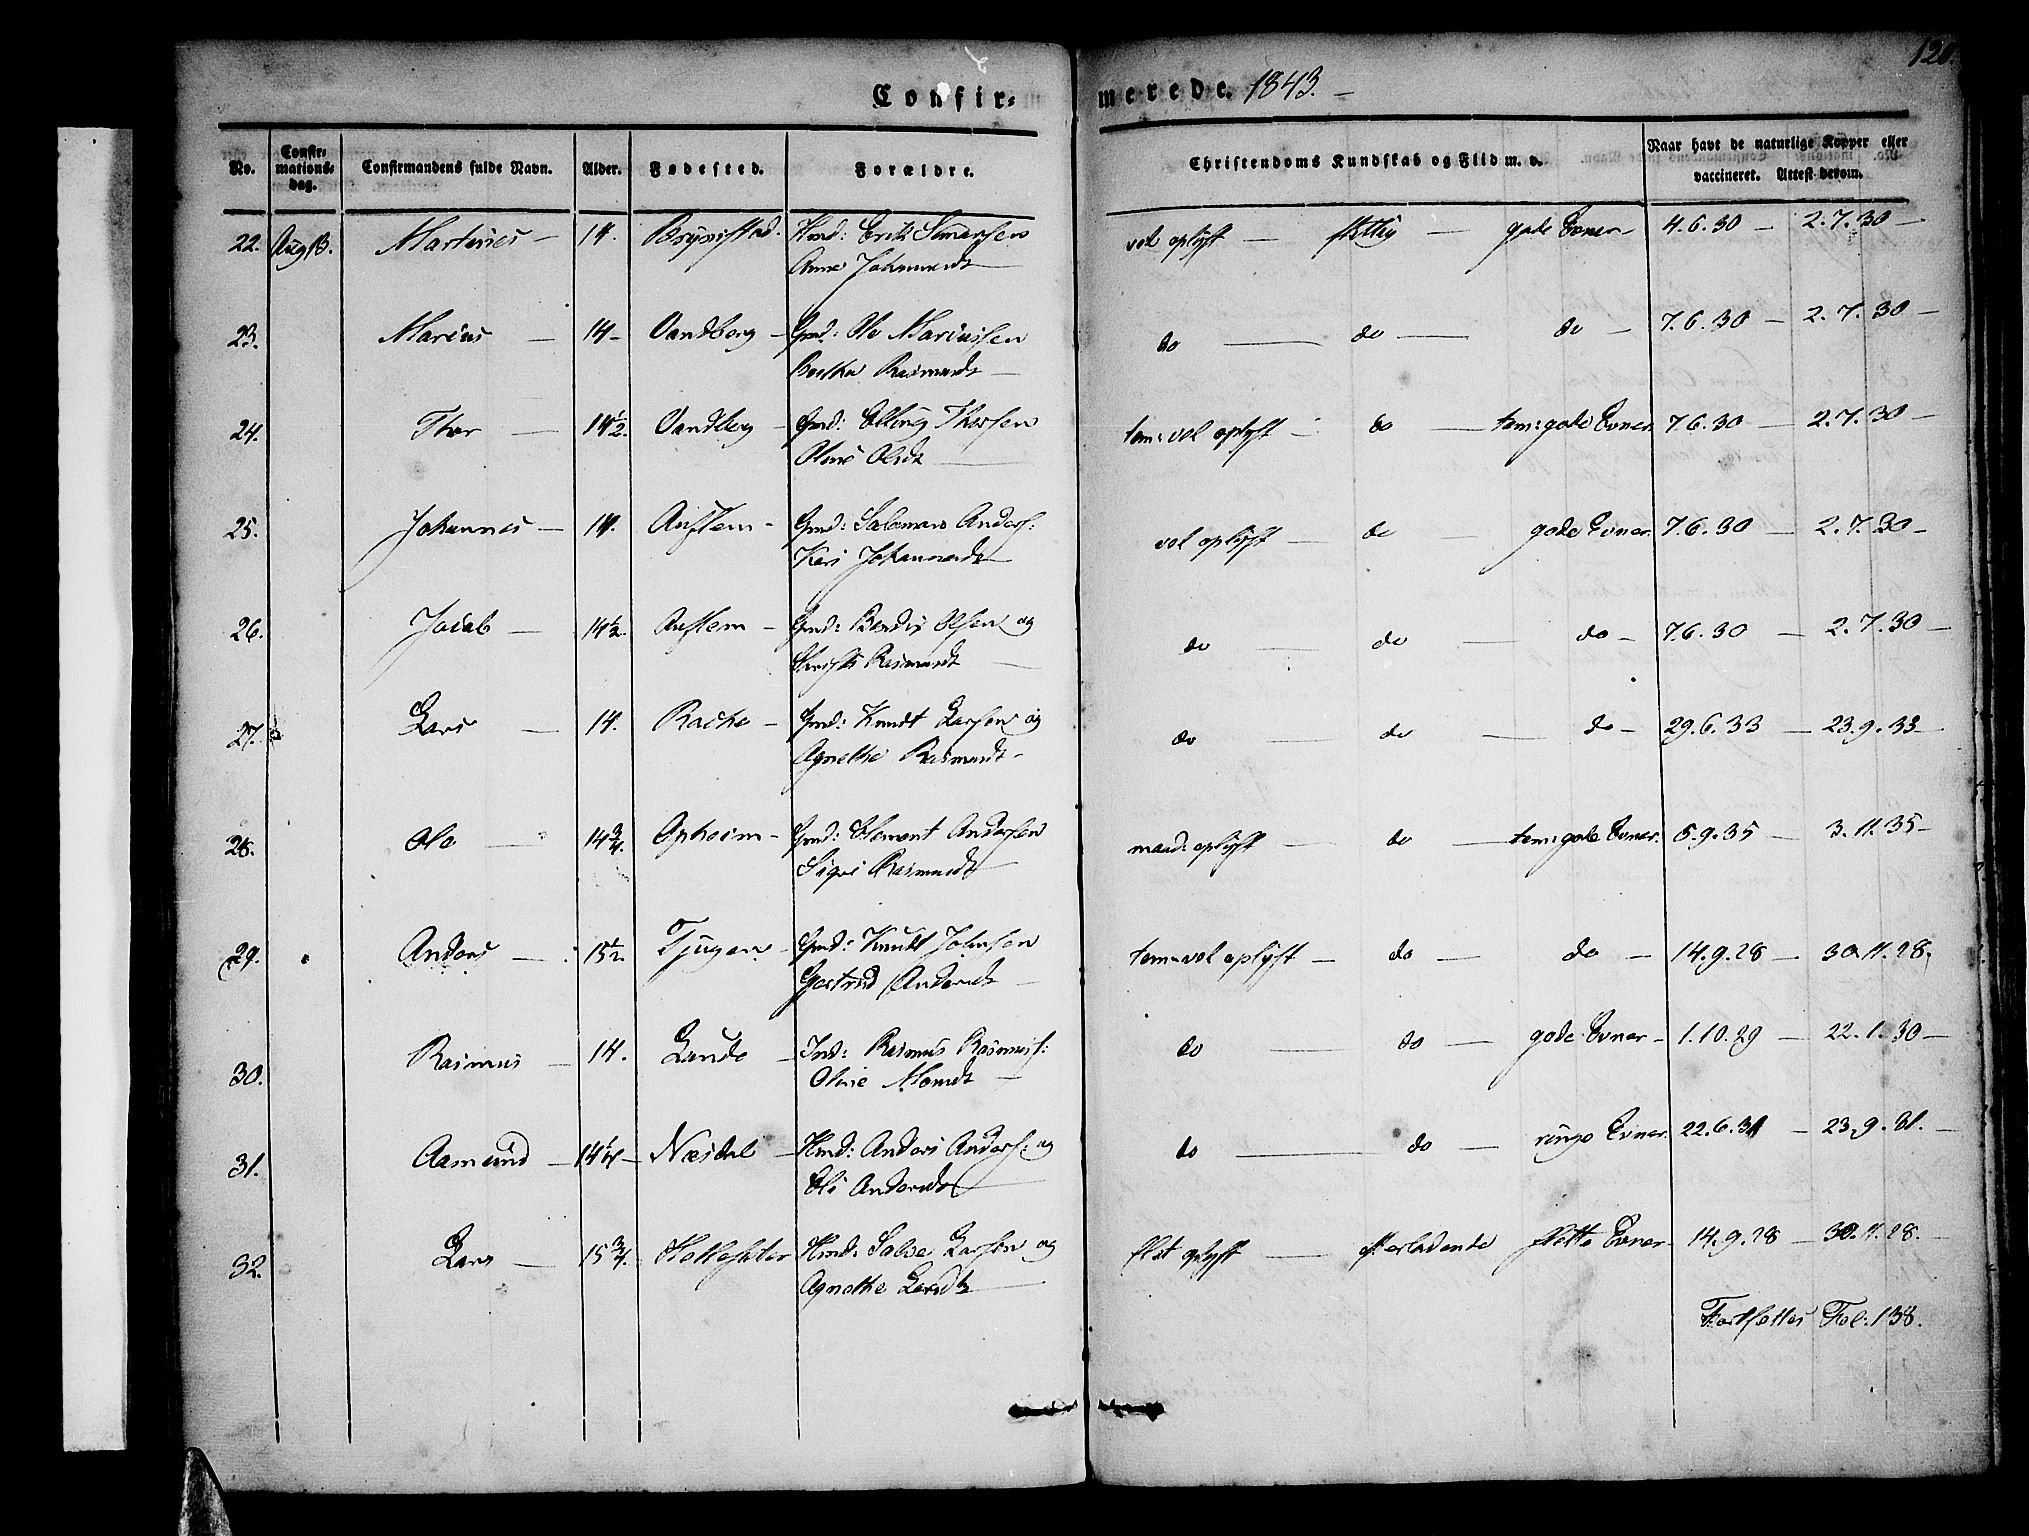 120.
Confir= merede. 1843. —
No. Confir= mations= dag. Confirmandens fulde Navn. Alder. Fødested. Forældre. Christendoms Kundskab og Flid m. v. Naar havt de naturlige Kopper eller vaccineret. Attest derom.
22. Martines — 14. Gmd: Erik
Anne Johannesdt —
vel oplyst — flittig — gode Evner — 4.6.30 — 2.7.30 —
23. Marius — 14 — Vandberg — Gmd: Ole Mariussen
Berthe Rasmusdt —
do — do — do — 7.6.30 — 2.7.30 —
24. Thor — 14½. Vandberg — Gmd: Elling Thorsen
Oline Olsdt —
tem: vel oplyst — do — tem: gode Evner. 7.6.30 — 2.7.30 —
25. Johannes — 14. Aaflem — Gmd: Salomon Anders:
Kari Johannesdt —
vel oplyst — do — gode Evner. 7.6.30 — 2.7.30 —
26. Jacob — 14½. Aaflem — Gmd: Olsen og
Rasmusdt —
do — do — do — 7.6.30 — 2.7.30 —
27. Lars — 14. Racke — Gmd: Knudt Larsen og
Agnethe Rasmusdt —
do — do — do — 29.6.33 — 23.9.33 —
28. Ole — 14¾. Opheim — Gmd: Clement Andersen
Signe Rasmusdt —
maad: oplyst — do — tem: gode Evner. 5.9.35 — 3.11.35 —
29. Anders — 15½. Tjugen — Gmd: Knudt Johnsen
Gertrud Andersdt —
tem: vel oplyst — do — do — 14.9.28 — 30.11.28.
30. Rasmus — 14. Lunde — Ind: Rasmus Rasmus:
Oline Monsdt —
do — do — gode Evner — 1.10.29 — 22.1.30 —
31. Aamund — 14¼ — Næsdal — Hmd: Anders Anders: og
Eli Andersdt —
do — do — ringe Evner. 22.6.31 — 23.9.31. —
32. Lars — 15¾. Hmd: Larsen og
Agnethe Larsdt —
slet oplyst — efterladende slette Evner — 14.9.28 — 30.11.28. —
Fortsættes Fol: 138.